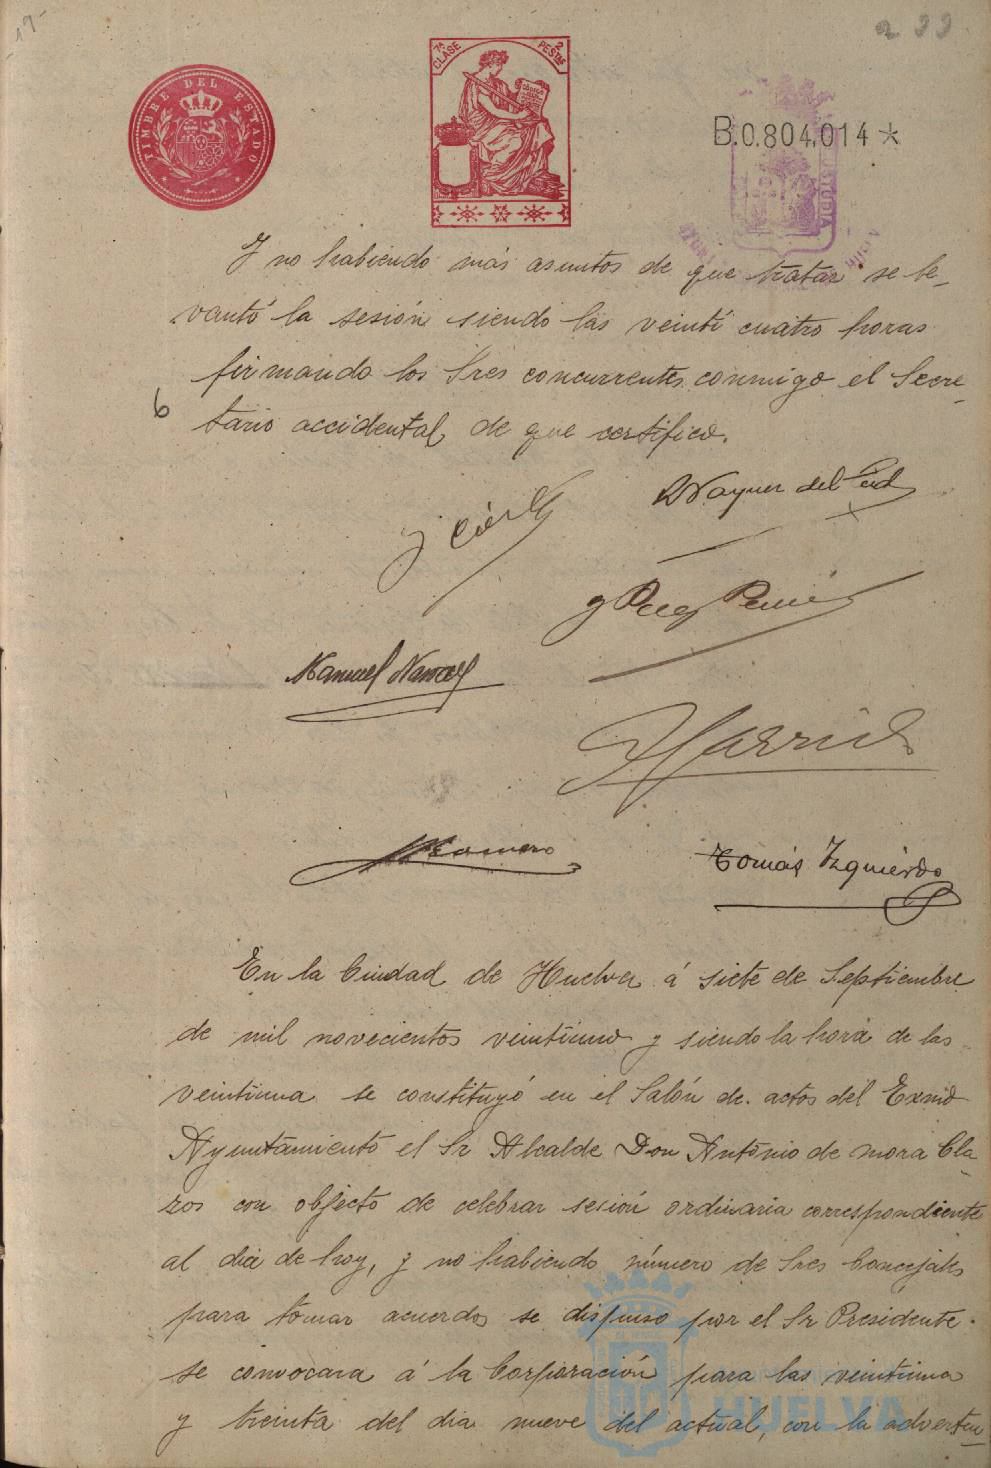 299
TIMBRE DEL ESTADO
7ª CLASE 2 PESTAS
B.0.804,014 *
Y no habiendo más asuntos de que tratar se le-
vantó la sesión siendo las veinti cuatro horas
firmando los Sres concurrentes conmigo el Secre-
6
tario accidental, de que certifico.
Manuel
Romero
Tomás Izquierdo
En la Ciudad de Huelva á siete de Septiembre
de mil novecientos veintiuno y siendo la hora de las
veintiuna se constituyó en el Salón de actos del Exmo
Ayuntamiento el Sr Alcalde Don Antonio de mora Cla-
ros con objeto de celebrar sesión ordinaria correspondiente
al dia de hoy, y no habiendo número de Sres Concejales
para tomar acuerdos se dispuso por el Sr Presidente
se convocara á la Corporación para las veintiuna
y treinta del dia nueve del actual, con la adverten-
HUELVA